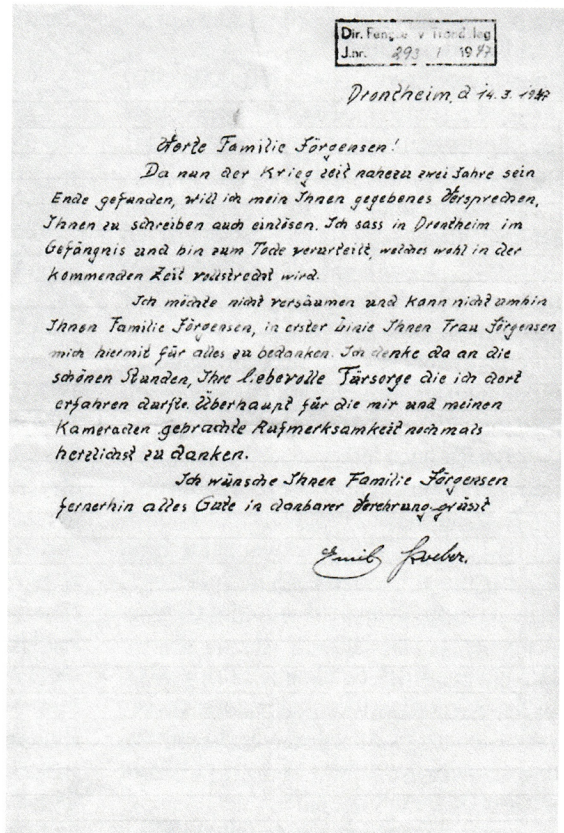 Dir. Fengse v Trøndelag
J.nr. 293 / 1947
Drontheim, d 14.3.1947
Werte Familie Jörgensen!
Da nun der Krieg seit nahezu zwei Jahre sein
Ende gefunden, will ich mein Ihnen gegebenes Versprechen,
Ihnen zu schreiben auch einlösen. Ich sass in Drontheim im
Gefängnis und bin zum Tode verurteilt, welches wohl in der
kommenden Zeit vollstreckt wird.
Ich möchte nicht versäumen und kann nicht umhin
Ihnen Familie Jörgensen, in erster Linie Ihnen Frau Jörgensen
mich hiermit für alles zu bedanken. Ich denke da an die
schönen Stunden, Ihre liebevolle Fürsorge die ich dort
erfahren durfte. Überhaupt für die mir und meinen
Kameraden gebrachte Aufmerksamkeit nochmals
herzlichst zu danken.
Ich wünsche Ihnen Familie Jörgensen
fernerhin alles Gute in danbarer Verehrung grüsst
Emil